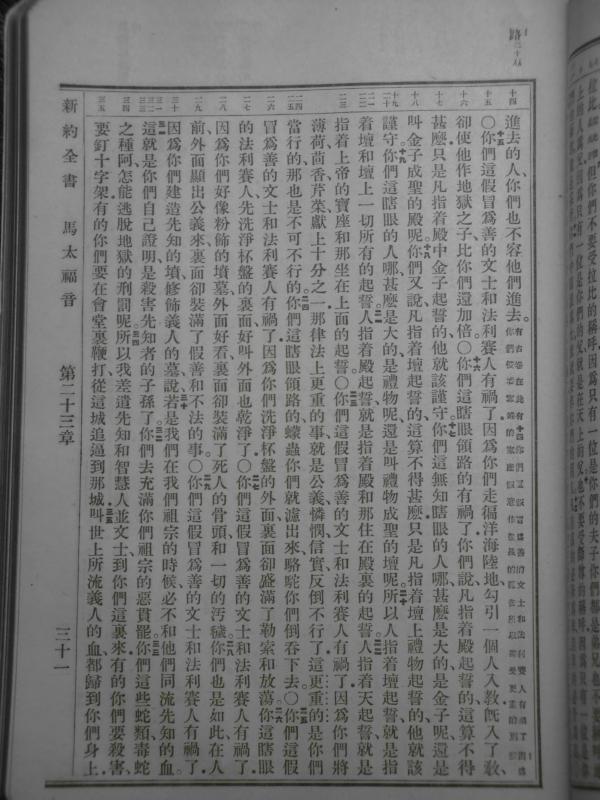 進去的人、你們也不容他們進去。
〇你們這假冒爲善的文士和法利賽人有禍了因爲你們走徧洋海陸地勾引一個人入教旣入了教、
卻使他作地獄之子比你們還加倍〇你們這瞎眼領路的有禍了你們說凡指着殿起誓的這算不得
甚麽只是凡指着殿中金子起誓的他就該謹守你們這無知瞎眼的人哪甚麽是大的是金子呢還是
叫金子成聖的殿呢你們又說凡指着壇起誓的這算不得甚麽只是凡指着壇上禮物起誓的他就該
謹守你們這瞎眼的人哪甚麽是大的是禮物呢還是叫禮物成聖的壇呢所以人指着壇起誓就是指
着壇和壇上一切所有的起誓人指着殿起誓就是指着殿和那住在殿裏的起誓人指着天起誓就是
指着上帝的寶座和那坐在上面的起誓〇你們這假冒爲善的文士和法利賽人有禍了因爲你們將
薄荷茴香芹菜獻上十分之一那律法上更重的事就是公義憐憫信實反倒不行了這更重的是你們
當行的那也是不可不行的你們這瞎眼領路的蠓蟲你們就濾出來駱駝你們倒吞下去〇你們這假
冒爲善的文士和法利賽人有禍了因爲你們洗淨杯盤的外面裏面卻盛滿了勒索和放蕩你這瞎眼
的法利賽人先洗淨杯盤的裏面好叫外面也乾淨了〇你們這假冒爲善的文士和法利賽人有禍了
因爲你們好像粉飾的墳墓外面好看裏面卻裝滿了死人的骨頭和一切的汚穢你們也是如此在人
前外面顯出公義來裏面卻裝滿了假善和不法的事〇你們這假冒爲善的文士和法利賽人有禍了
因爲你們建造先知的墳修飾義人的墓說若是我們在我們祖宗的時候必不和他們同流先知的血
這就是你們自己證明是殺害先知者的子孫了你們去充滿你們祖宗的惡貫罷你們這些蛇類毒蛇
之種阿怎能逃脫地獄的刑罰呢所以我差遣先知和智慧人並文士到你們這裏來有的你們要殺害、
要釘十字架有的你們要在會堂裏鞭打從這城追逼到那城叫世上所流義人的血都歸到你們身上、
新約全書 馬太福音 第二十三章 三十一